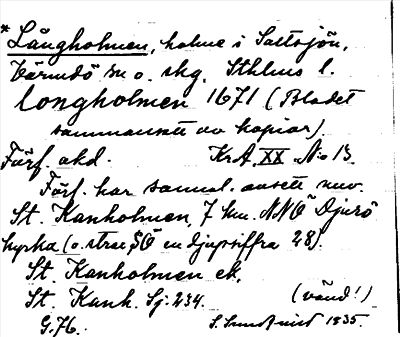 * Långholmen, holme i Saltsjön,
Värmdö sn o. skg. Sthlms l.
longholmen 1671 (Bladet
sammansatt av kopior).
Förf. okd. KrA. XX N:o 13.
Förf. har sannol. avsett nuv.
St. Kanholmen, 7 km. NNÖ Djurö
kyrka (o. strax SÖ en djupsiffra 28).
St. Kanholmen ek.
St. Kanh. Sj. 234. (vänd!)
G.76. S. Sundqvist 1935.